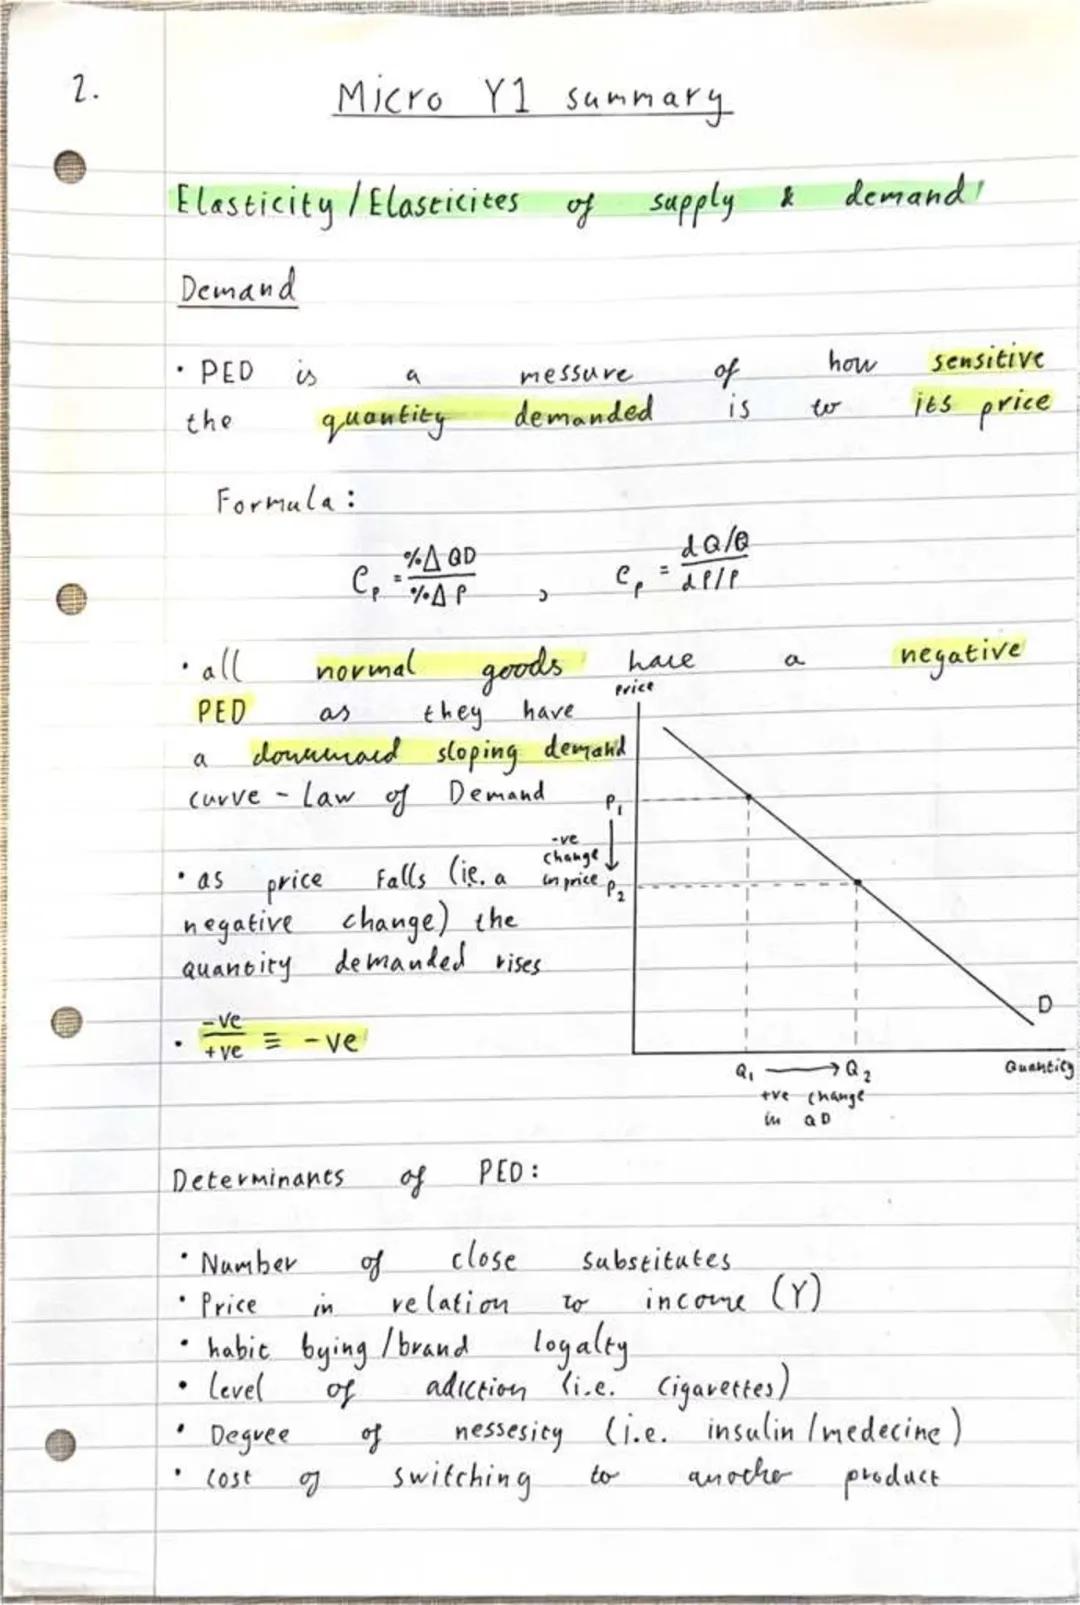 2.
Micro Y1 summary
Elasticity/Elasticites of supply & demand
Demand
· PED is a messure of how sensitive
the quantity demanded is to its price
Formula:
e_p = %Δ QD / %Δ P , e_p = dQ/Q / dP/P
· all normal goods have a negative
PED as they have
a downward sloping demand
curve - Law of Demand
· as price Falls (ie. a
negative change) the
quantity demanded rises
· -ve / +ve ≡ -ve
Price
P₁
-ve
change
in price
P₂
D
Q₁ → Q₂
Quantity
+ve change
in QD
Determinants of PED:
· Number of close substitutes
· Price in relation to income (Y)
· habit bying/brand loyalty
· level of adiction (i.e. cigarettes)
· Degree of nessesity (i.e. insulin/medecine)
· cost of switching to another product